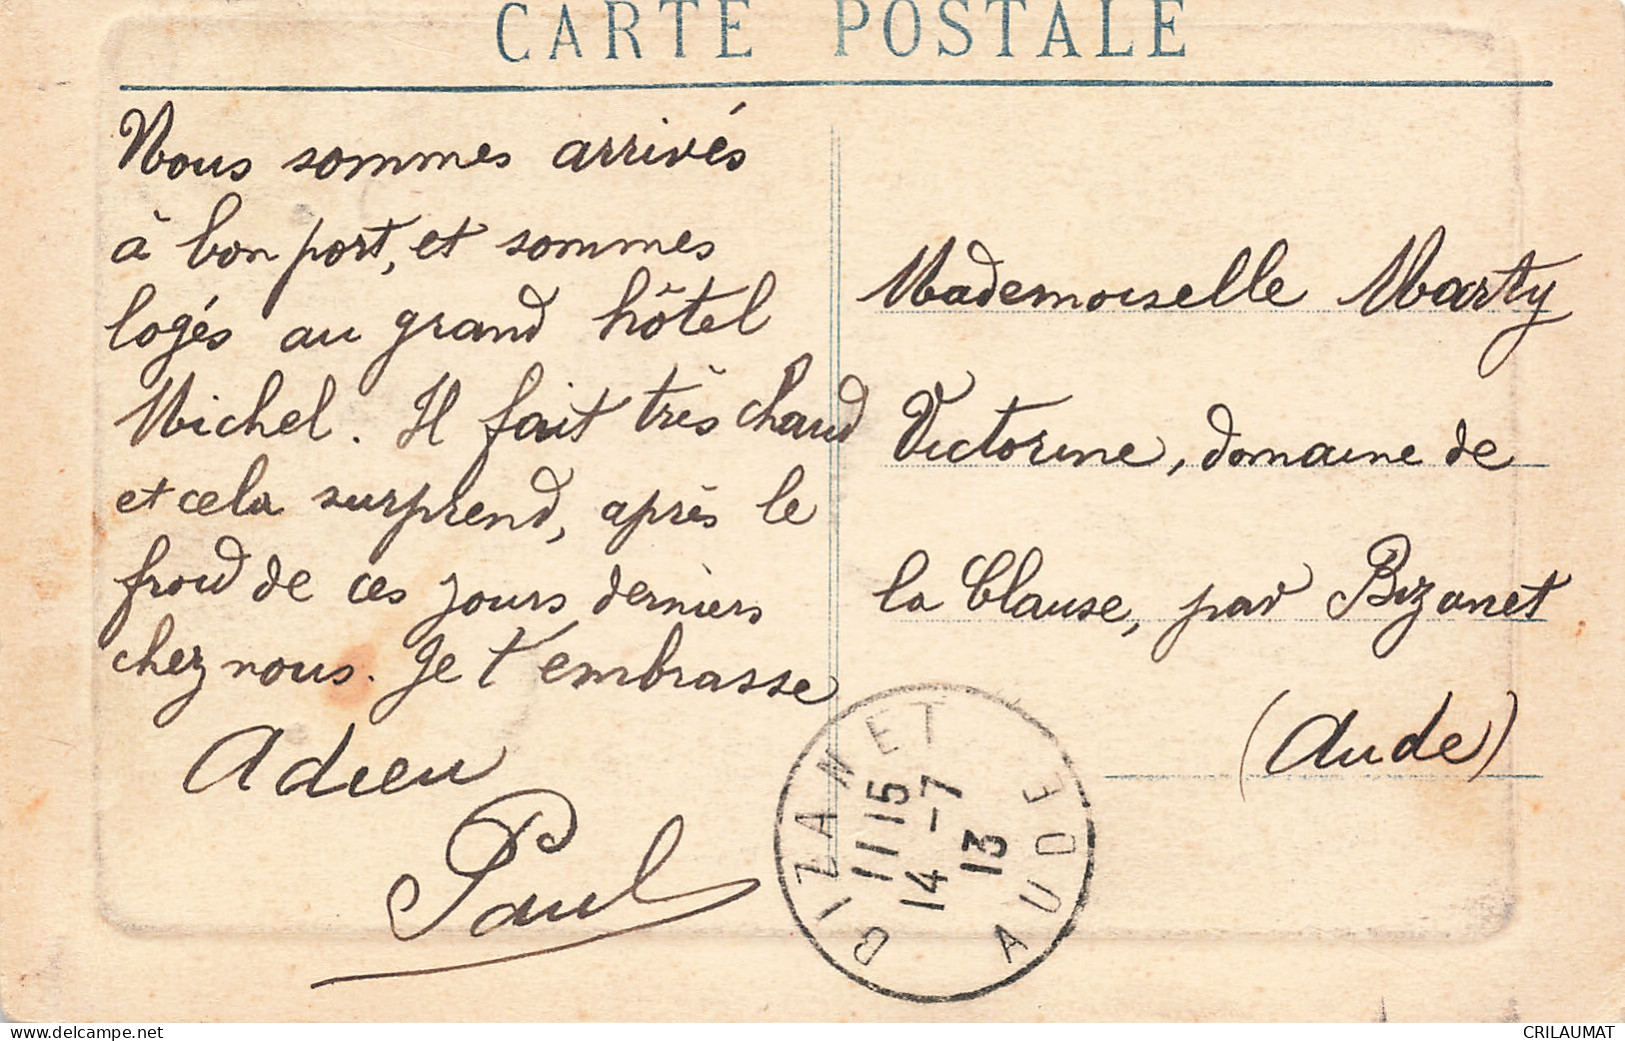 CARTE POSTALE
Nous sommes arrivés
à bon port, et sommes
logés au grand hôtel
Michel. Il fait très chaud
et cela surprend, après le
froid de ces jours derniers
chez nous. Je t'embrasse
Adieu
Paul
Mademoiselle Marty
Victorine, domaine de
la Clause, par Bizanet
(Aude)
BIZANET
11 15
14 - 7
13
AUDE
www.delcampe.net
CRILAUMAT